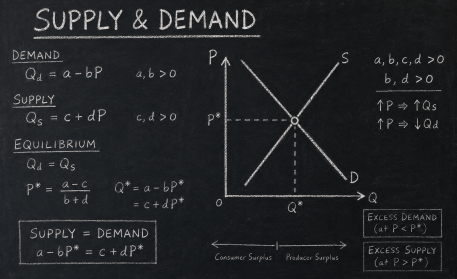 SUPPLY & DEMAND
DEMAND
Qd = a - bP   a, b > 0
SUPPLY
Qs = c + dP   c, d > 0
EQUILIBRIUM
Qd = Qs
P* = (a - c)/(b + d)   Q* = a - bP*
= c + dP*
SUPPLY = DEMAND
a - bP* = c + dP*
P
S
P*
D
O
Q*
Q
Consumer Surplus
Producer Surplus
a, b, c, d > 0
b, d > 0
↑P ⇒ ↑Qs
↑P ⇒ ↓Qd
EXCESS DEMAND
(at P < P*)
EXCESS SUPPLY
(at P > P*)